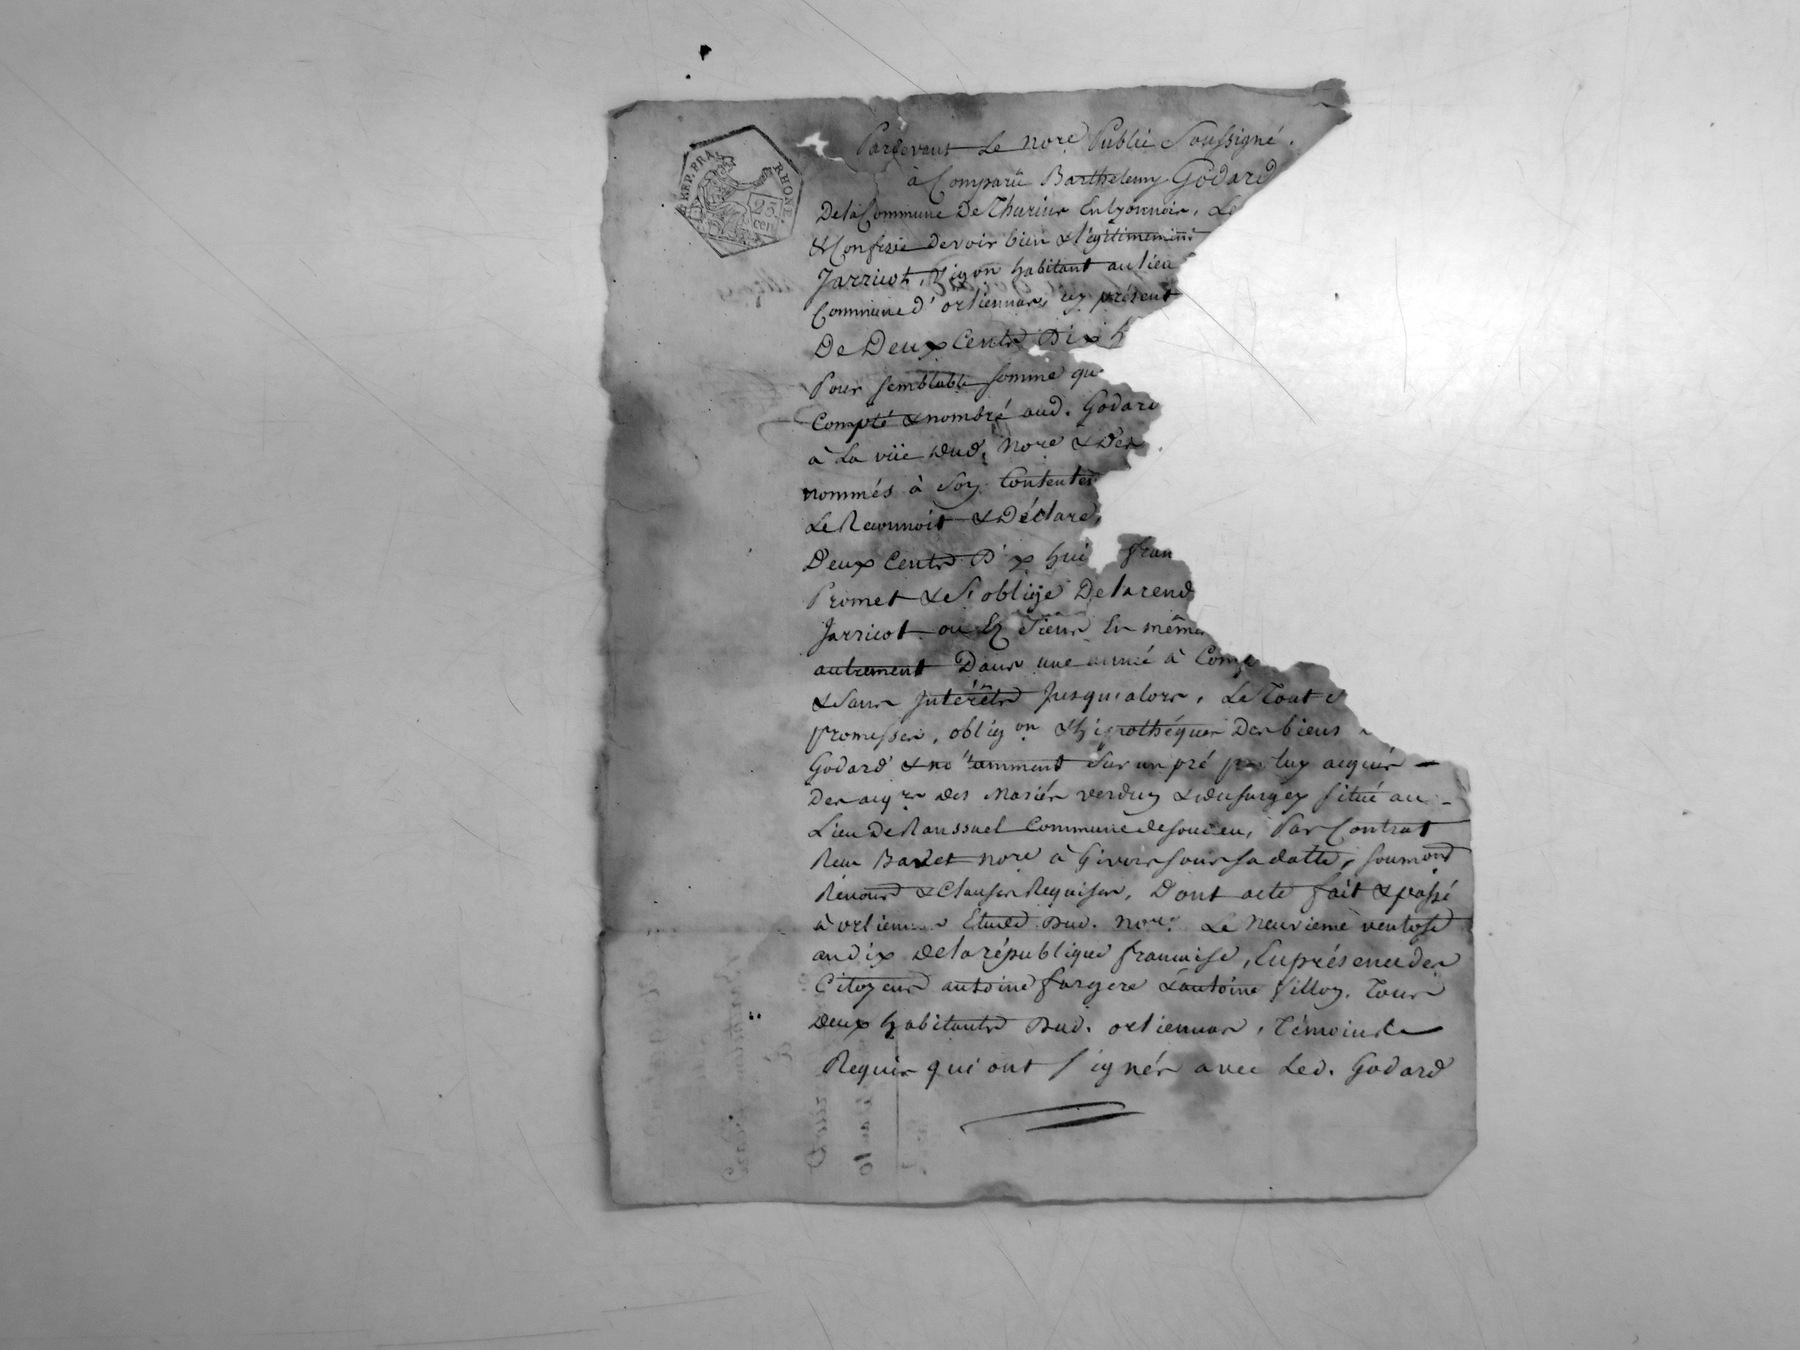 REP. FRA. RHONE
25 cen
Pardevant Le nore Public Soussigné.
à Comparü Barthelemy Godard
De la Commune De Thurins En lyonnois, Le
& Confesse devoir bien & légitimement
Jarricot, vigon habitant au lieu
Commune d'orliennas icy présent
De Deux Cents Dix h
Pour semblable somme qu
Compté & nombré aud. Godard
à La vüe dud. Nore & Des
nommés à Soy Contenter
Le Reconnoit & Déclare,
Deux Cents Dix hui fran
Promet & S'oblige De la rend
Jarricot ou Ez Siens En même
autrement Dans une année à Comp
& Sans Intérêts Jusqu'alors, Le Tout
promesses, oblig.on & hipothéques Des biens
Godard & notamment Sur un pré par luy acquis
Des Mariés verduy & dusurgey situé au
Lieu De Ranssuel Commune de soucieu, Par Contrat
Reçu Badet nore à Givors sous sa datte, soumond
Renond & Clauses Requises, Dont acte fait & passé
à orliennas Etude Dud. Nore. Le neuvieme ventose
an dix de la république francaise, En présence des
Citoyens antoine fargere & antoine Villoy. Tous
Deux habitants Dud. orliennas, Témoins
Requis qui ont signés avec Led. Godard